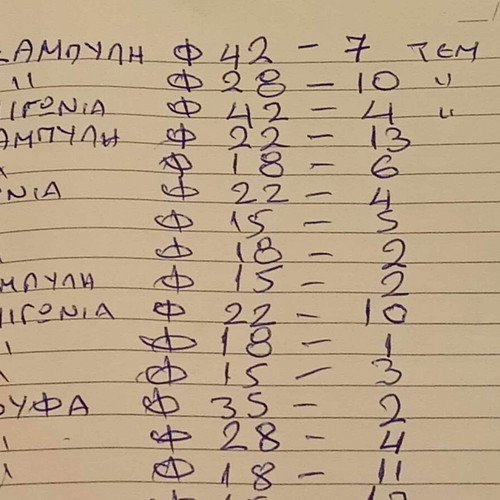 ΚΑΜΠΥΛΗ Φ 42 - 7 ΤΕΜ
" Φ 28 - 10 "
ΙΓΩΝΙΑ Φ 42 - 4 "
ΑΜΠΥΛΗ Φ 22 - 13
" Φ 18 - 6
ΩΝΙΑ Φ 22 - 4
Φ 15 - 5
Φ 18 - 2
ΜΠΥΛΗ Φ 15 - 2
ΜΙΓΩΝΙΑ Φ 22 - 10
" Φ 18 - 1
" Φ 15 - 3
ΟΥΦΑ Φ 35 - 2
" Φ 28 - 4
" Φ 18 - 11